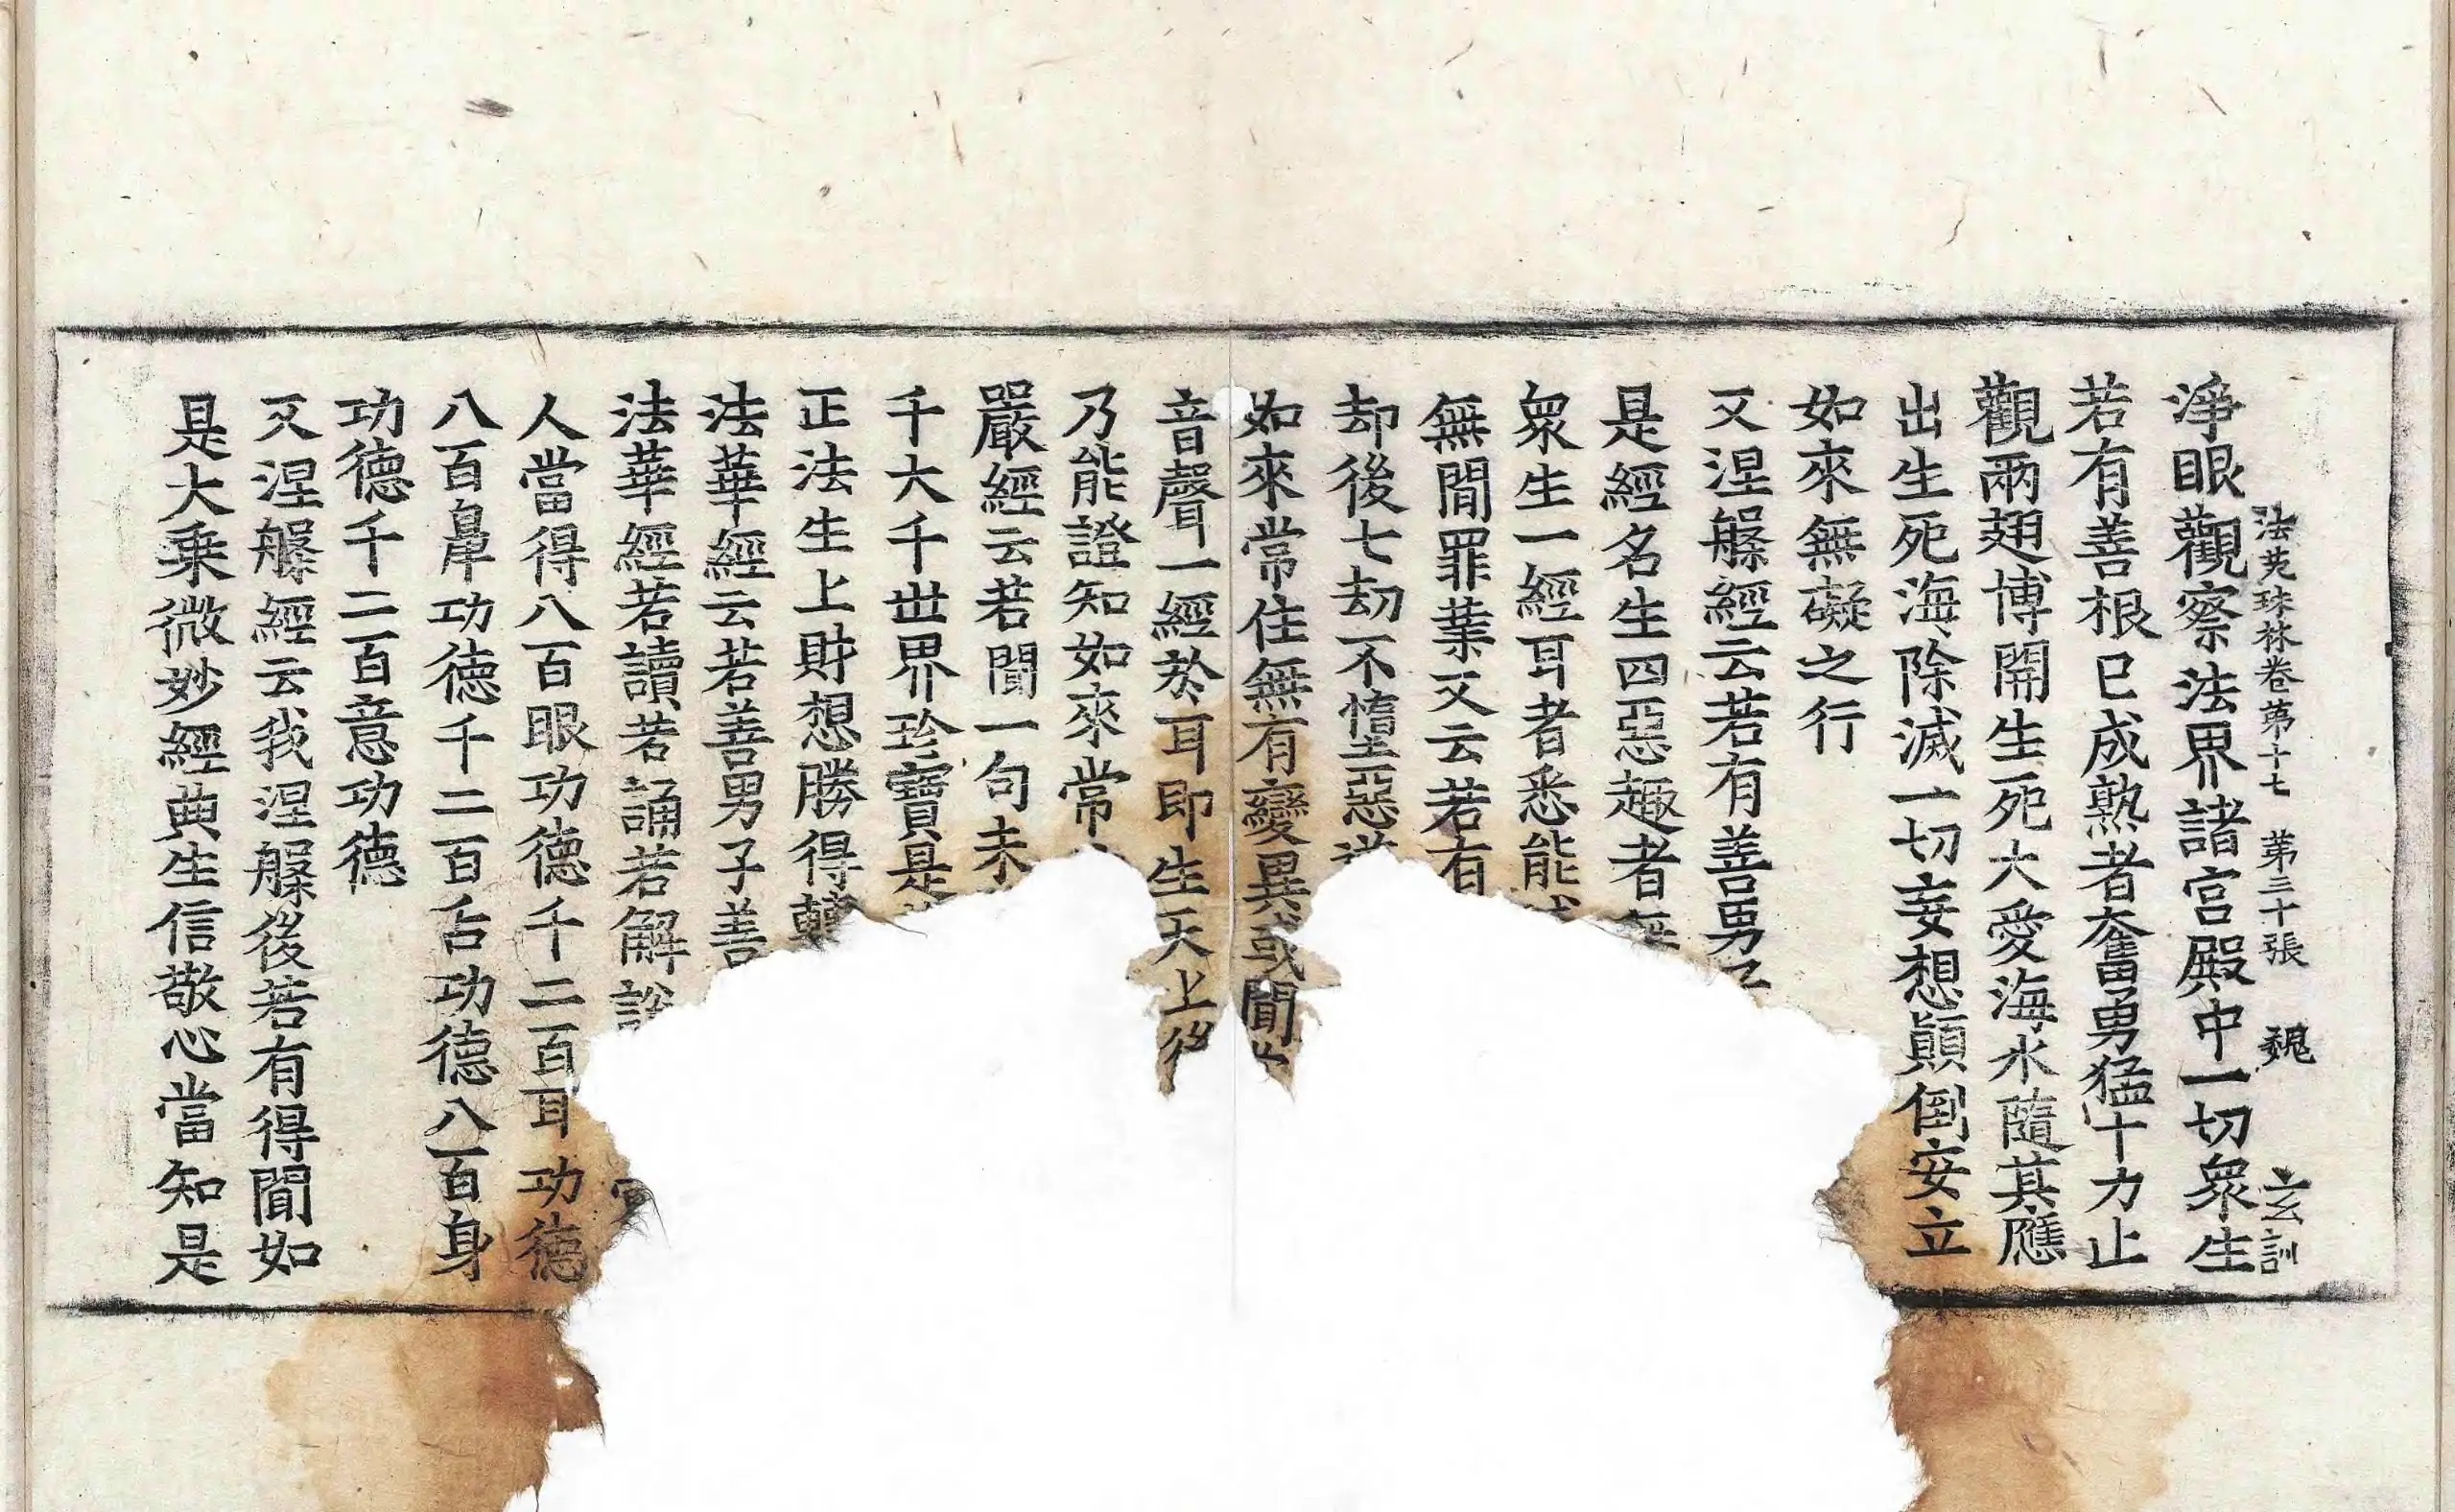 法苑珠林卷第十七 第三十張 魏 玄訓
淨眼觀察法界諸宮殿中一切衆生
若有善根已成熟者奮勇猛十力止
觀兩翅博開生死大愛海水隨其應
出生死海除滅一切妄想顛倒安立
如來無礙之行
又涅槃經云若有善男子
是經名生四惡趣者無
衆生一經耳者悉能
無閒罪業又云若有
却後七劫不墮惡
如來常住無有變異或聞
音聲一經於耳即生天上後
乃能證知如來常
嚴經云若聞一句未
千大千世界珍寶是
正法生上財想勝得轉
法華經云若善男子善
法華經若讀若誦若解說
人當得八百眼功德千二百耳功德
八百鼻功德千二百舌功德八百身
功德千二百意功德
又涅槃經云我涅槃後若有得聞如
是大乘微妙經典生信敬心當知是